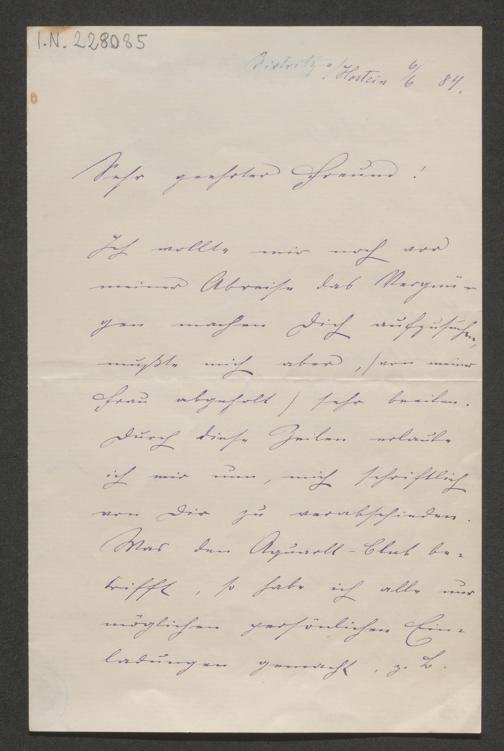 I.N. 228085
Bistritz a/Hostein 6/6 84.
Sehr geehrter Freund!
Ich wollte mir noch vor
meiner Abreise das Vergnü-
gen machen Dich aufzusuchen,
mußte mich aber, (von meiner
Frau abgeholt) sehr beeilen.
Durch diese Zeilen erlaube
ich mir nun, mich schriftlich
von Dir zu verabschieden.
Was den Aquarell-Club be-
trifft, so habe ich alle nur
möglichen persönlichen Ein-
ladungen gemacht, z. B.